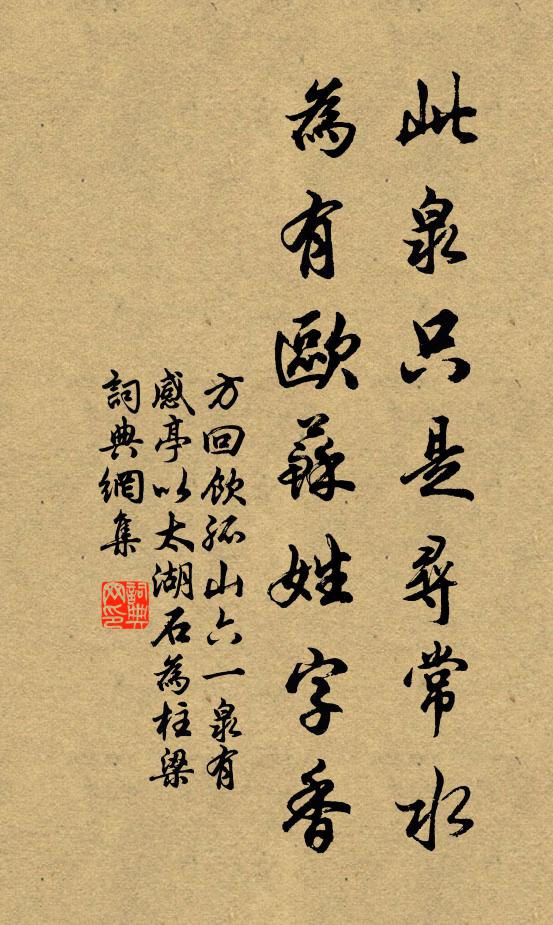 此泉只是尋常水
為有歐蘇姓字香
方回飲孤山六一泉有
感亭以太湖石為柱梁
詞典網集
詞典網印